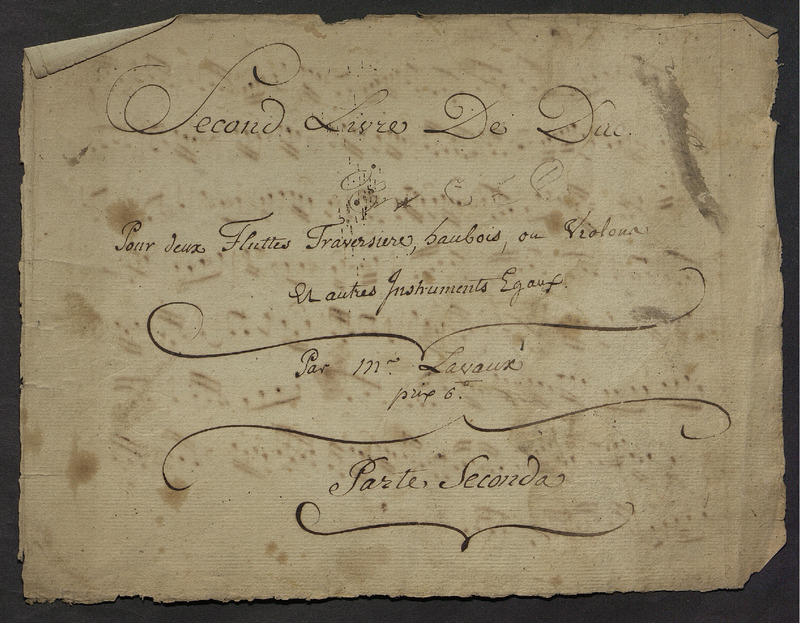 Second Livre De Duo.
Pour deux Fluttes Traversiere, haubois, ou Violons
Et autres Instruments Egaux.
Par Mr. Lavaux
prix 6.
Parte Seconda